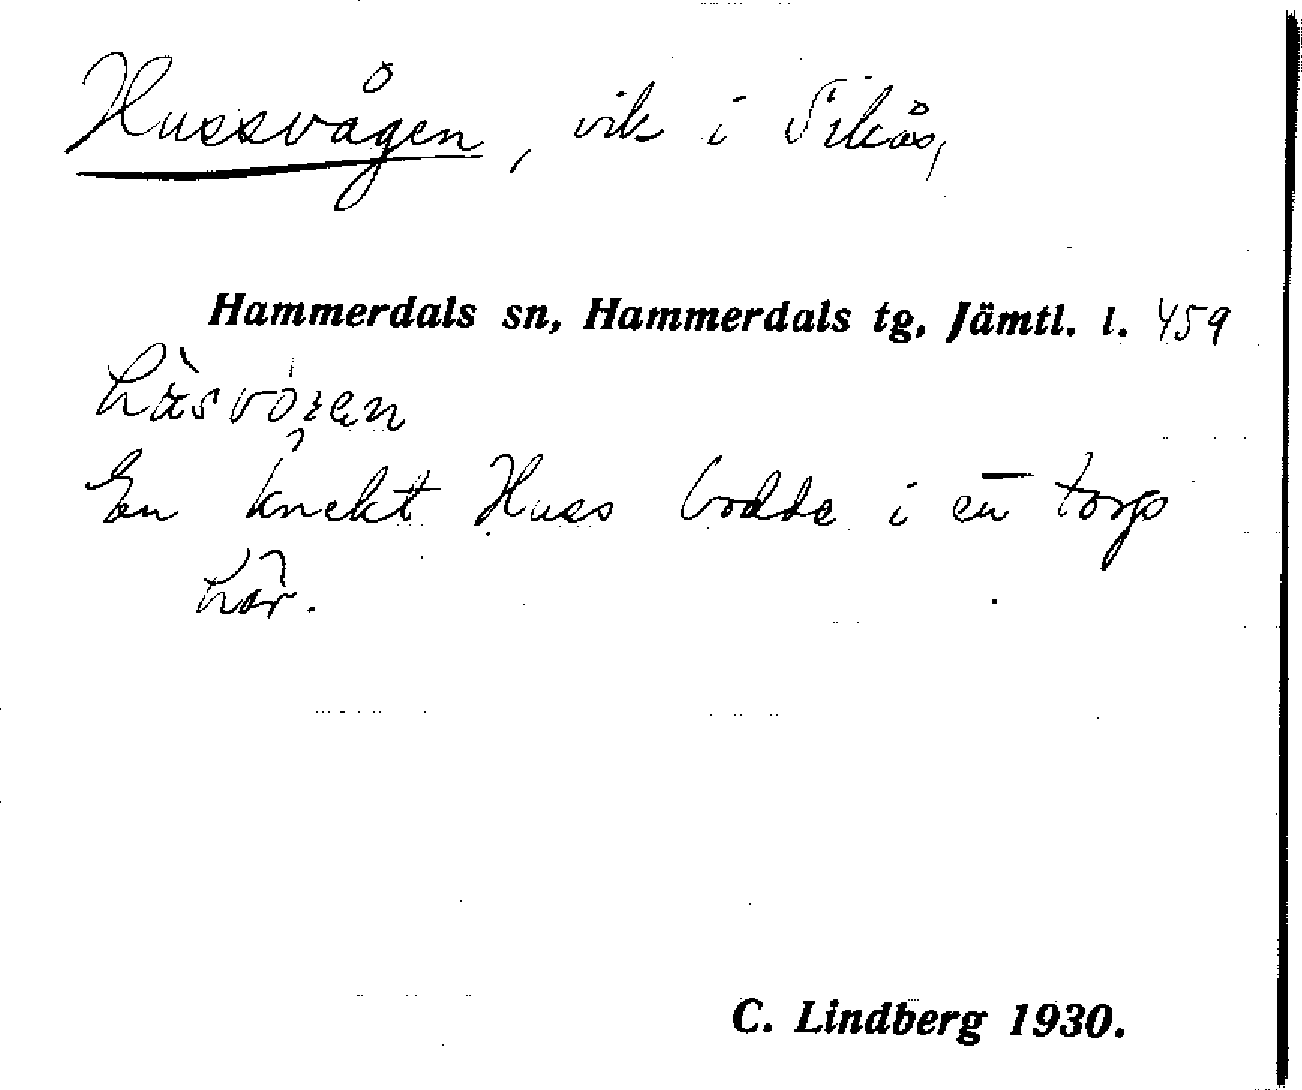 Hussvågen, vik i Sikås,
Hammerdals sn, Hammerdals tg, Jämtl. l. 459
En knekt Huss bodde i en torp
här.
C. Lindberg 1930.